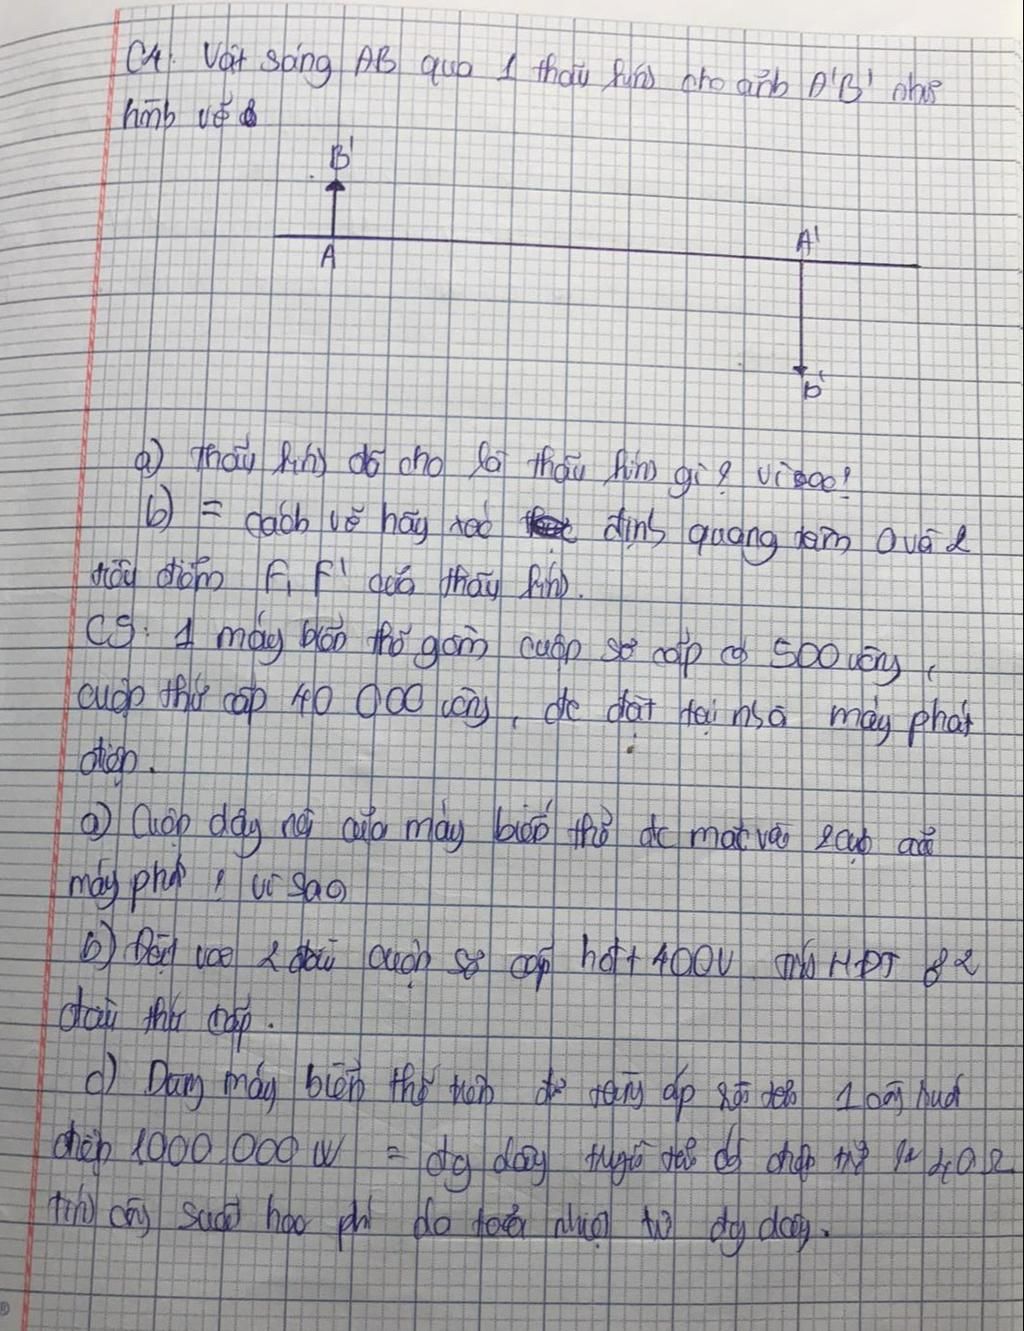 C4. Vật sáng AB qua 1 thấu kính cho ảnh A'B' như
hình vẽ
B'
A
A'
B'
a) Thấu kính đã cho là thấu kính gì? Vì sao?
b) = cách vẽ hãy xác định quang tâm O và 2
tiêu điểm F, F' của thấu kính.
C5. 1 máy biến thế gồm cuộn sơ cấp có 500 vòng,
cuộn thứ cấp 40 000 vòng, đc đặt tại nhà máy phát
điện.
a) Cuộn dây nào của máy biến thế đc mắc vào 2 cực của
máy phát? vì sao
b) Đặt vào 2 đầu cuộn sơ cấp hđt 400V tính HĐT ở 2
đầu thứ cấp.
c) Dùng máy biến thế trên để tăng áp rồi tải 1 công suất
điện 1000 000 W = đg dây truyền tải có điện trở là 40Ω
tính công suất hao phí do toả nhiệt trên đg dây.